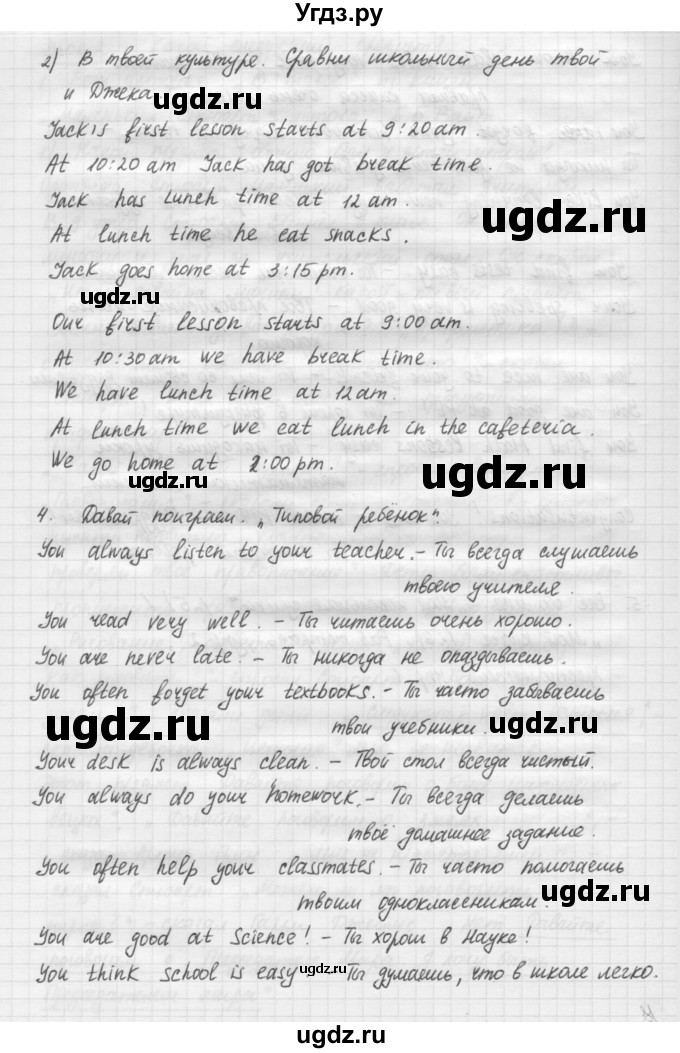 Угдз.ру
2) В твоей культуре. Сравни школьный день твой
и Джека
ugdz.ru
Jack's first lesson starts at 9:20 am.
At 10:20 am Jack has got break time.
Jack has lunch time at 12 am.
ugdz.ru
At lunch time he eat snacks.
Jack goes home at 3:15 pm.
ugdz.ru
Our first lesson starts at 9:00 am.
At 10:30 am we have break time.
We have lunch time at 12 am.
At lunch time we eat lunch in the cafeteria.
We go home at 2:00 pm.
ugdz.ru
4. Давай поиграем. „Типовой ребёнок".
You always listen to your teacher. – Ты всегда слушаешь
твоего учителя.
You read very well. – Ты читаешь очень хорошо.
You are never late. – Ты никогда не опаздываешь.
You often forget your textbooks. – Ты часто забываешь
твои учебники.
ugdz.ru
ugdz.ru
Your desk is always clean. – Твой стол всегда чистый.
You always do your homework. – Ты всегда делаешь
твоё домашнее задание.
You often help your classmates. – Ты часто помогаешь
твоим одноклассникам.
ugdz.ru
You are good at Science! – Ты хорош в Науке!
You think school is easy – Ты думаешь, что в школе легко.
ugdz.ru
ugdz.ru